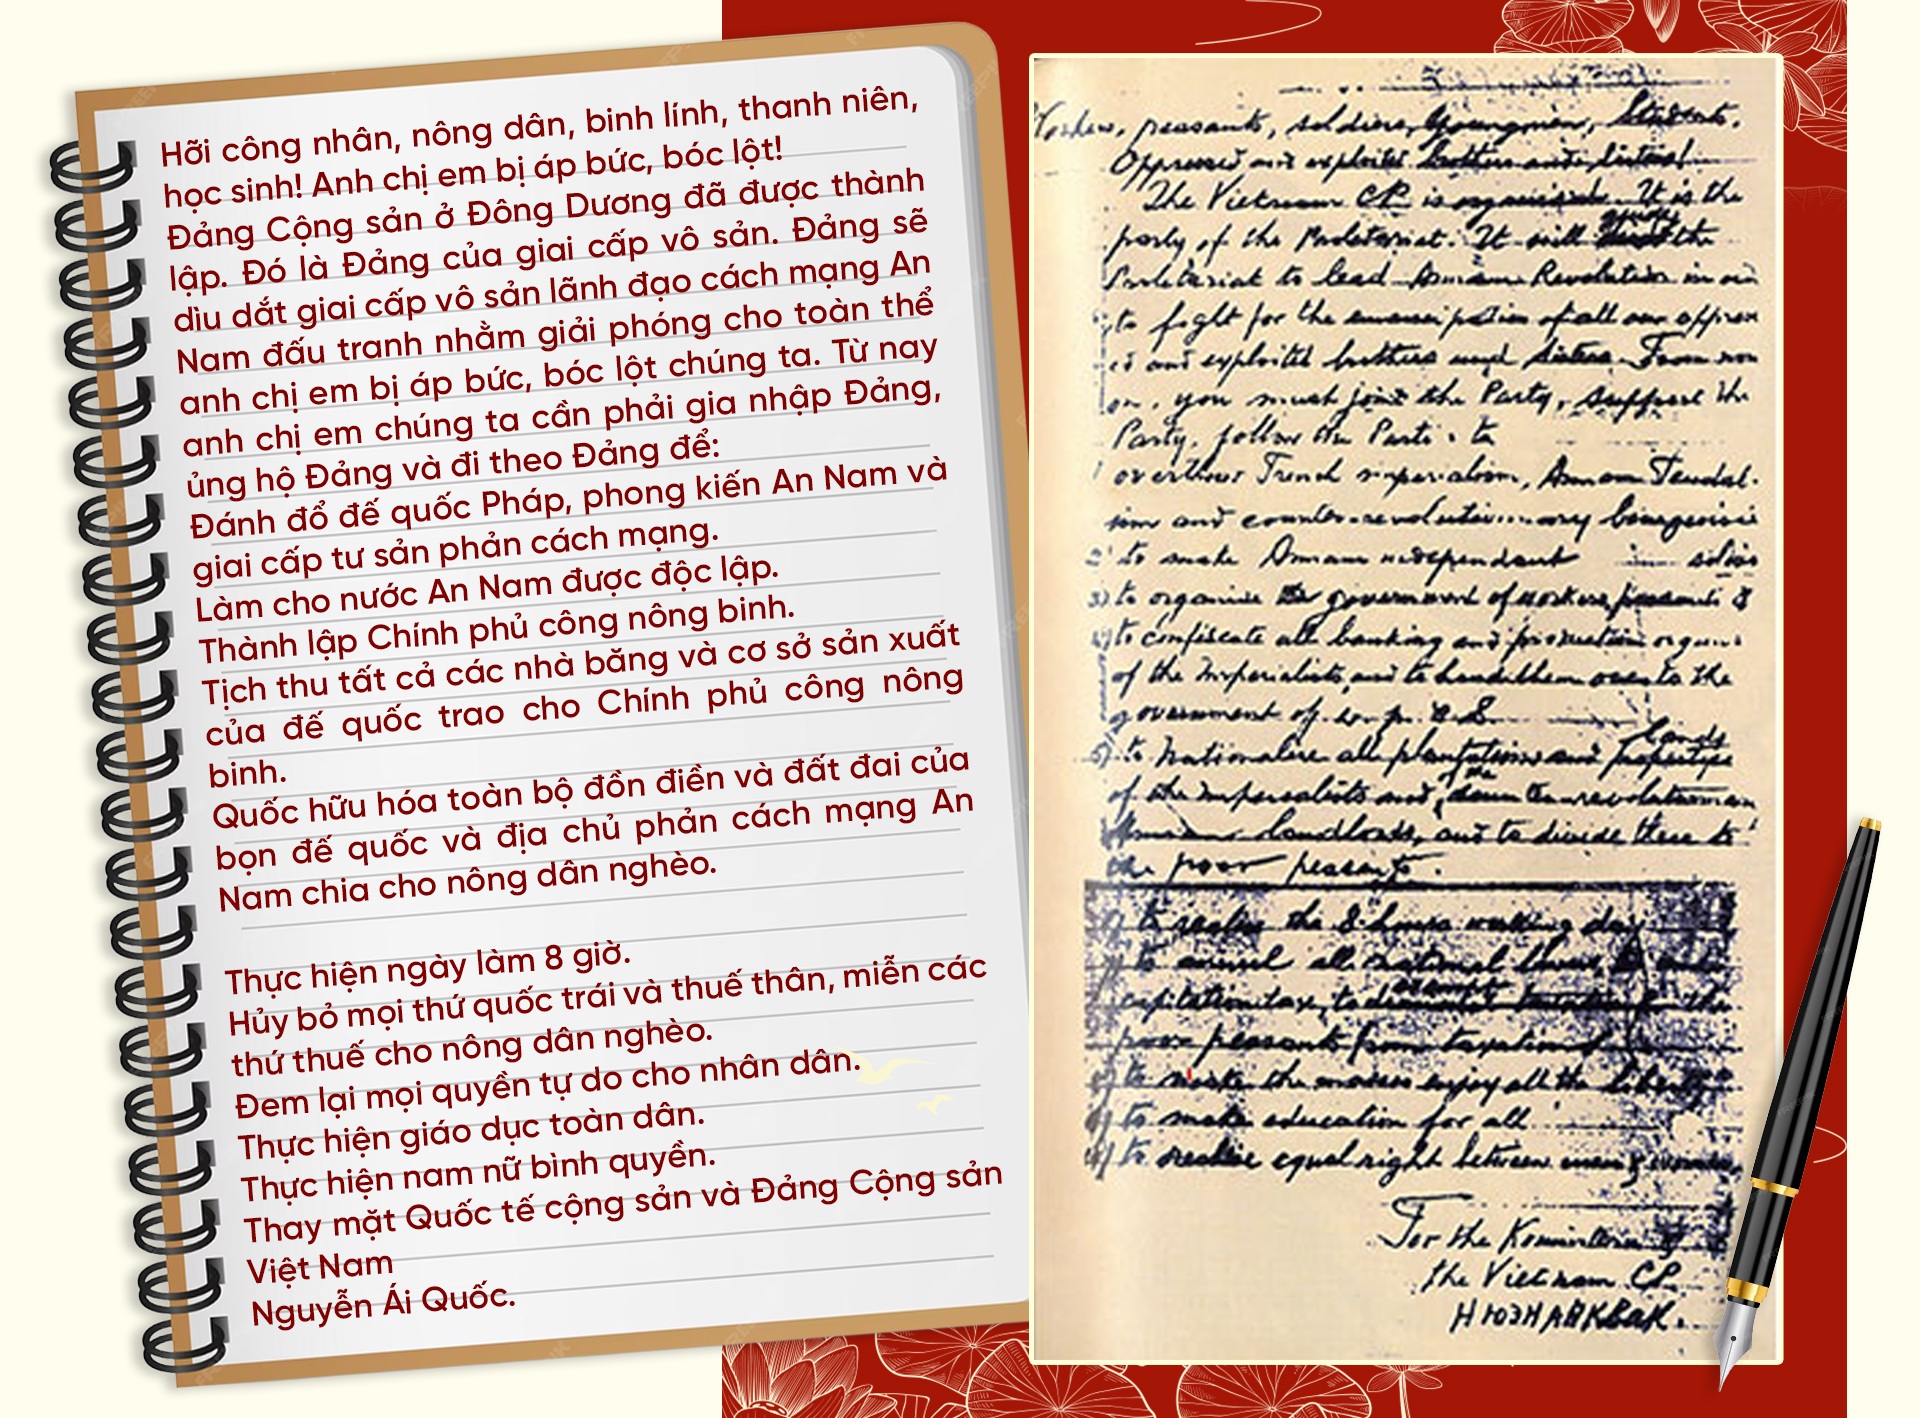 Hỡi công nhân, nông dân, binh lính, thanh niên,
học sinh! Anh chị em bị áp bức, bóc lột!
Đảng Cộng sản ở Đông Dương đã được thành
lập. Đó là Đảng của giai cấp vô sản. Đảng sẽ
dìu dắt giai cấp vô sản lãnh đạo cách mạng An
Nam đấu tranh nhằm giải phóng cho toàn thể
anh chị em bị áp bức, bóc lột chúng ta. Từ nay
anh chị em chúng ta cần phải gia nhập Đảng,
ủng hộ Đảng và đi theo Đảng để:
Đánh đổ đế quốc Pháp, phong kiến An Nam và
giai cấp tư sản phản cách mạng.
Làm cho nước An Nam được độc lập.
Thành lập Chính phủ công nông binh.
Tịch thu tất cả các nhà băng và cơ sở sản xuất
của đế quốc trao cho Chính phủ công nông
binh.
Quốc hữu hóa toàn bộ đồn điền và đất đai của
bọn đế quốc và địa chủ phản cách mạng An
Nam chia cho nông dân nghèo.
Thực hiện ngày làm 8 giờ.
Hủy bỏ mọi thứ quốc trái và thuế thân, miễn các
thứ thuế cho nông dân nghèo.
Đem lại mọi quyền tự do cho nhân dân.
Thực hiện giáo dục toàn dân.
Thực hiện nam nữ bình quyền.
Thay mặt Quốc tế cộng sản và Đảng Cộng sản
Việt Nam
Nguyễn Ái Quốc.
peasants, soldiers, youngmen, Students.
Oppressed and exploited brothers and sisters!
The Vietnam CP is organised. It is the
party of the Proletariat. It will the
Proletariat to lead Annam Revolution in
to fight for the emancipation of all our
and exploited brothers and sisters. From now
on, you must join the Party, support the
Party, follow the to
overthrow French imperialism, Annam Feudal-
ism and counter-revolutionary bourgeoisie
2 to make Annam independent
3) to organise the government of workers peasants &
4) to confiscate all banking and production
of the imperialists, and to hand them over to the
government of w. p. & S.
lands
5) to nationalise all plantations and
of the imperialists and the revolutionary
Annam landlords, and to divide them to
the poor peasants.
to realise the 8 hours working day
to all national
capitation tax, to the
poor peasants from taxation
to make the masses enjoy all the
to make education for all
to realise equal right between and
For the Komintern &
the Vietnam CP